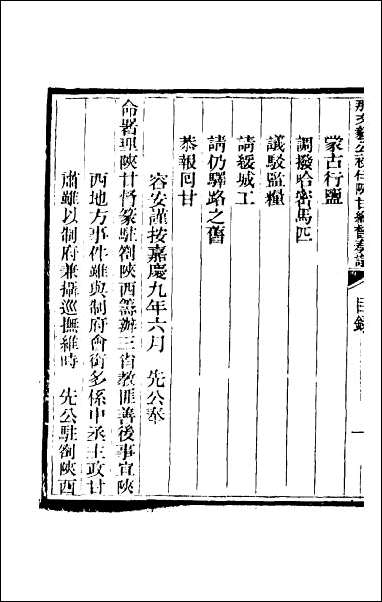 那文毅公初任陝甘總督奏議
目錄
一
蒙古行鹽
調撥哈密馬匹
議駁監糧
請緩城工
請仍驛路之舊
恭報回甘
容安謹按嘉慶九年六月　先公奉
命署理陝甘督篆駐劄陝西籌辦三省教匪善後事宜陝
西地方事件雖與制府會銜多係中丞主政甘
肅雖以制府兼攝巡撫維時　先公駐劄陝西